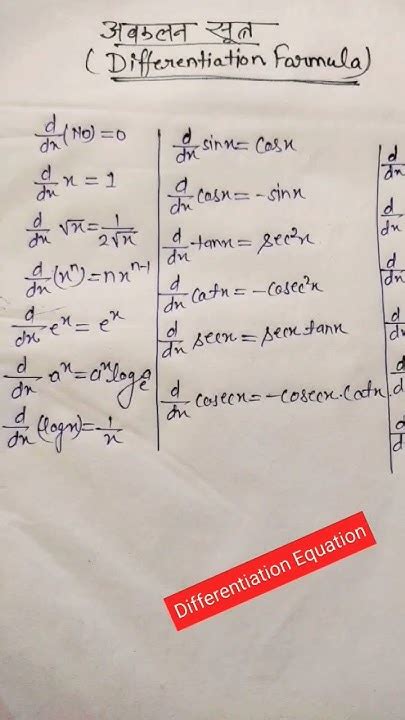 अवकलन सूत्र
(Differentiation Farmula)
d/dx (No) = 0
d/dx x = 1
d/dx √x = 1/2√x
d/dx (xⁿ) = nxⁿ⁻¹
d/dx eˣ = eˣ
d/dx aˣ = aˣ logₑa
d/dx (logx) = 1/x
d/dx sinx = Cosx
d/dx Cosx = -sinx
d/dx tanx = sec²x
d/dx Catx = -Cosec²x
d/dx secx = secx tanx
d/dx Cosecx = -Cosecx.Catx
d/dx
d/dx
d/dx
d/dx
d/d
d/d
Differentiation Equation